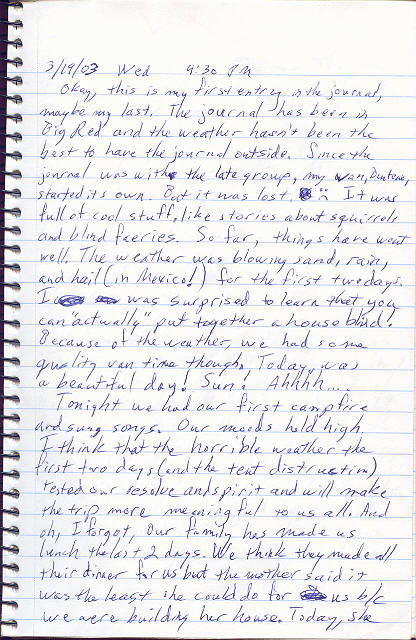 3/19/03 Wed 9:30 PM
Okay, this is my first entry in the journal,
maybe my last. The journal has been in
Big Red and the weather hasn't been the
best to have the journal outside. Since the
journal was with the late group, my van,
started its own. But it was lost. :( It was
full of cool stuff, like stories about squirrels
and blind faeries. So far, things have went
well. The weather was blowing sand, rain,
and hail (in Mexico!) for the first two days.
I was surprised to learn that you
can "actually" put together a house blind!
Because of the weather, we had some
quality van time though. Today was
a beautiful day! Sun! Ahhhh...
Tonight we had our first campfire
and sung songs. Our moods held high.
I think that the horrible weather the
first two days (and the tent distruction)
tested our resolve and spirit and will make
the trip more meaningful to us all. And
oh, I forgot, our family has made us
lunch the last 2 days. We think they made all
their dinner for us but the mother said it
was the least she could do for us b/c
we were building her house. Today, she